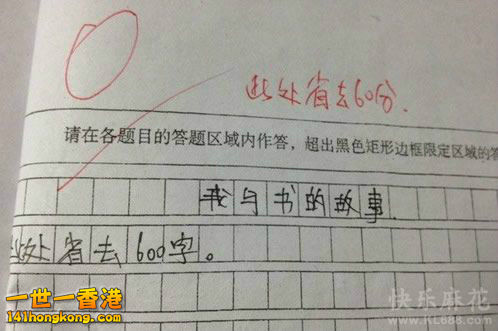 此处省去60分.
请在各题目的答题区域内作答，超出黑色矩形边框限定区域的答
我与书的故事.
此处省去600字。
一世一香港
141hongkong.com
快乐麻花
WWW.KL688.com